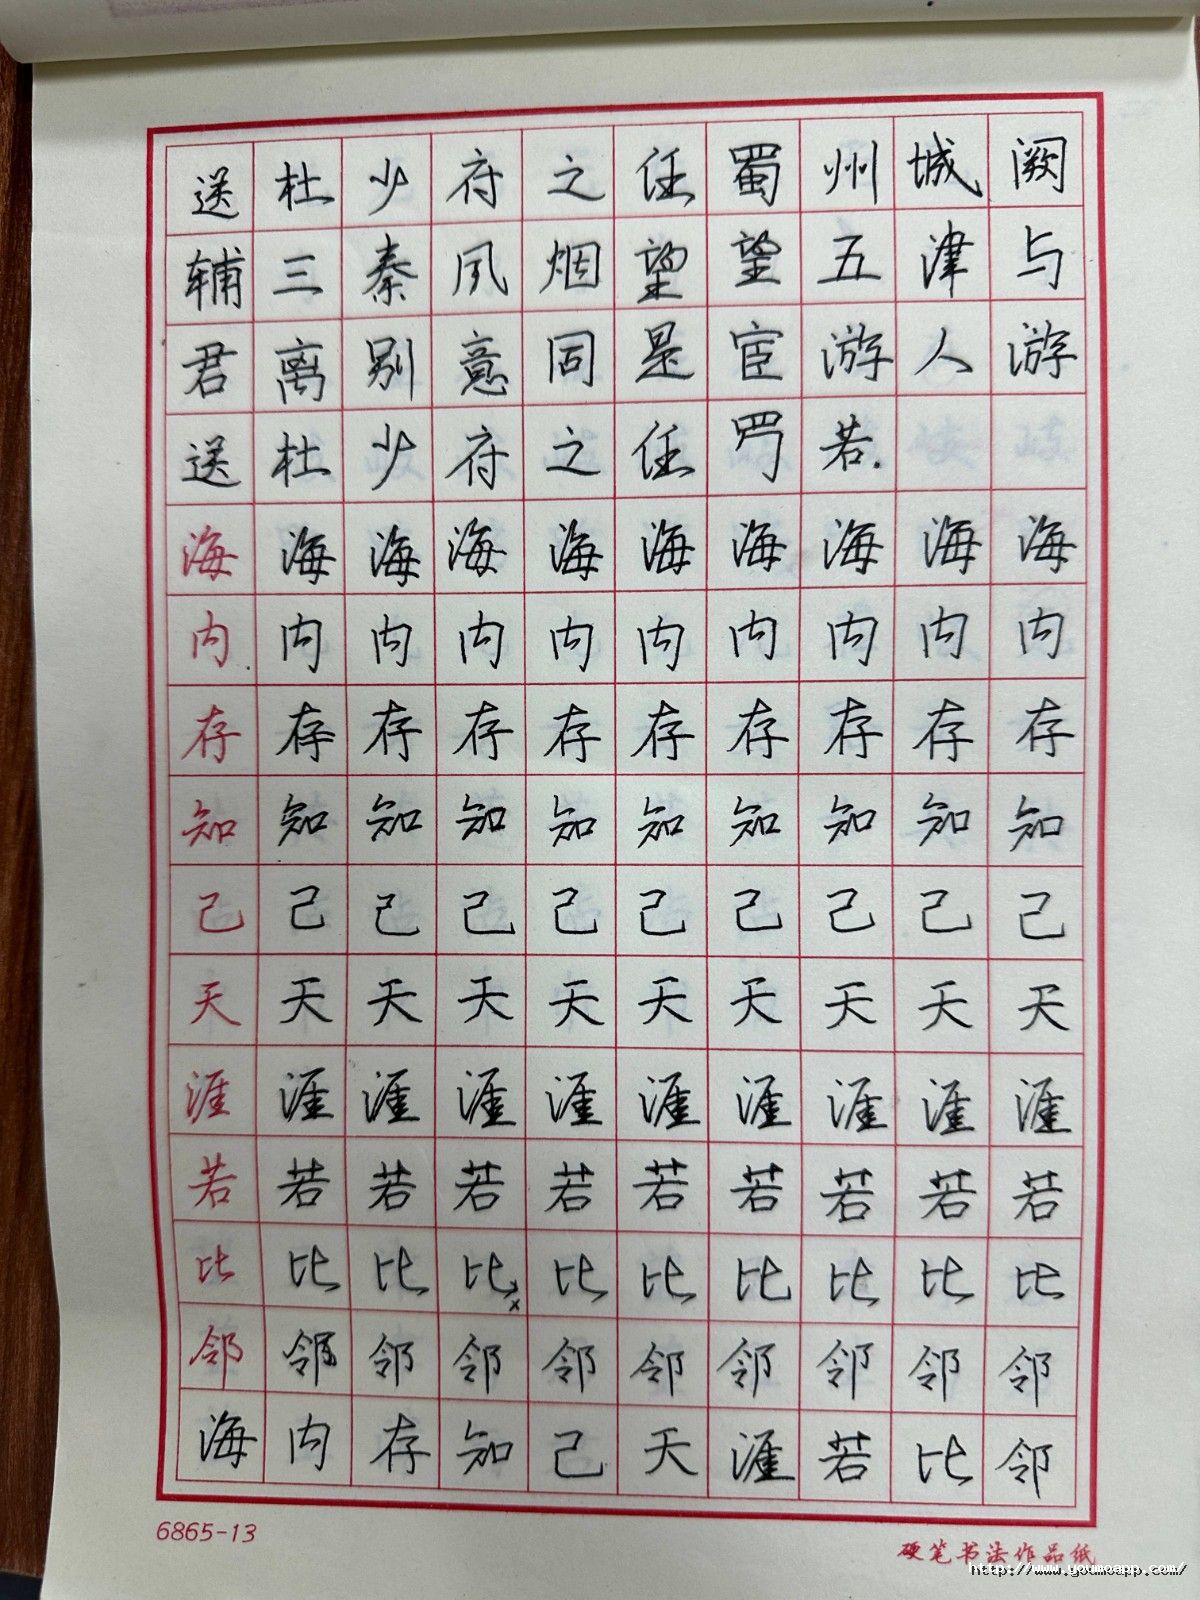 送杜少府之任蜀州城阙
辅三秦风烟望望五津与
君离别意同是宦游人游
送杜少府之任罗若.
海海海海海海海海海海
内内内内内内内内内内
存存存存存存存存存存
知知知知知知知知知知
己己己己己己己己己己
天天天天天天天天天天
涯涯涯涯涯涯涯涯涯涯
若若若若若若若若若若
比比比比比比比比比比
邻邻邻邻邻邻邻邻邻邻
海内存知己天涯若比邻
6865-13
硬笔书法作品纸
http://www.youmoapp.com/